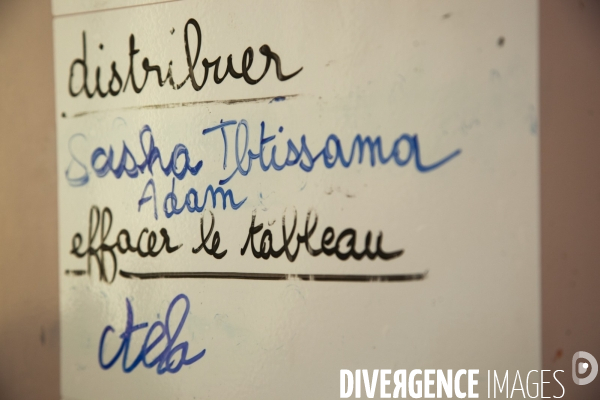 distribuer
Sasha Ibtissama
Adam
effacer le tableau
DIVERGENCE IMAGES